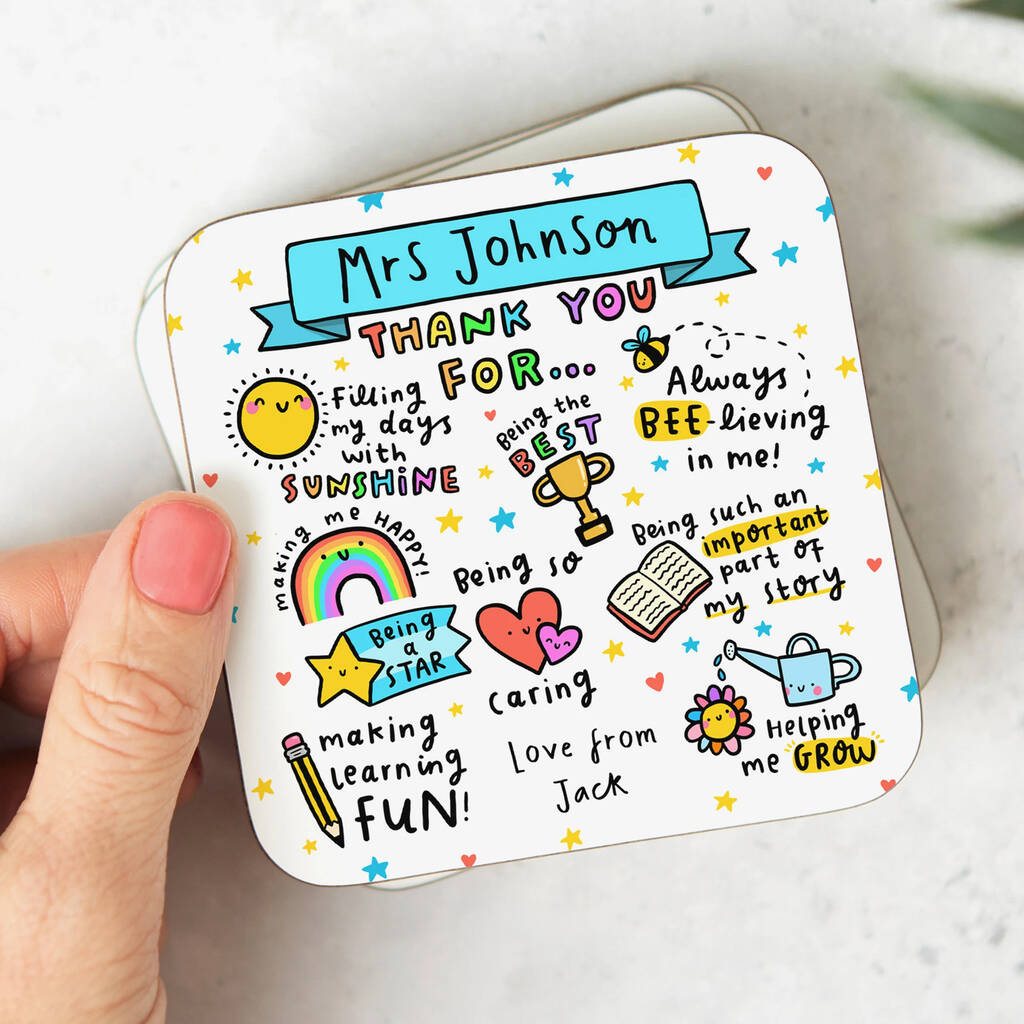 Mrs Johnson
THANK YOU
FOR...
Filling
my days
with
SUNSHINE
Being the
BEST
Always
BEE-lieving
in me!
making me HAPPY!
Being so
caring
Being such an
important
part of
my story
Being
a
STAR
making
learning
FUN!
Love from
Jack
Helping
me GROW